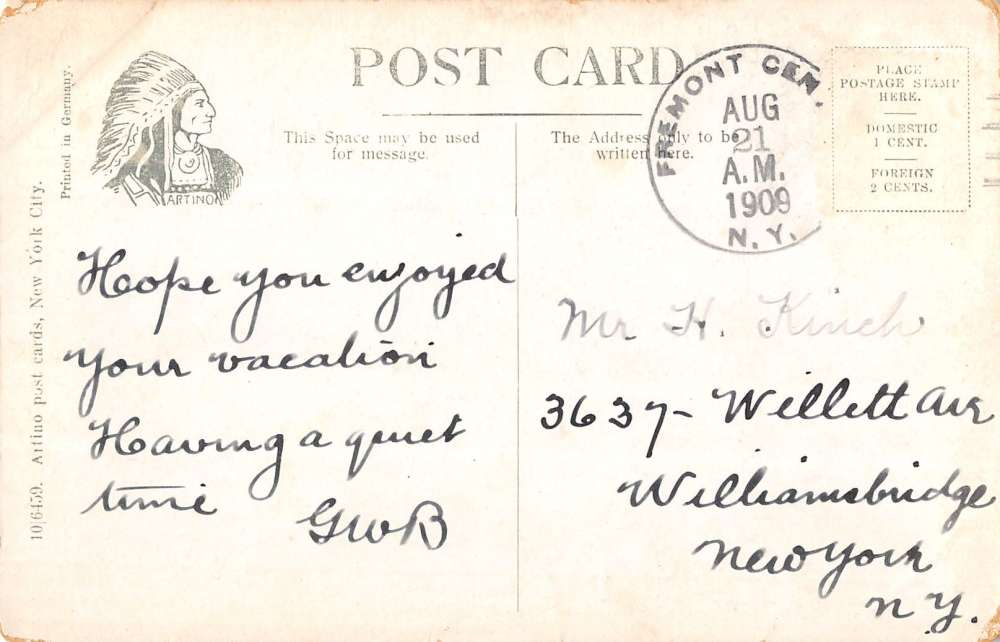 POST CARD
Printed in Germany.
ARTINO
10|6459. Artino post cards, New York City.
This Space may be used
for message.
The Address only to be
written here.
FREMONT CEN.
AUG
21
A.M.
1909
N.Y.
PLACE
POSTAGE STAMP
HERE.
DOMESTIC
1 CENT.
FOREIGN
2 CENTS.
Hope you enjoyed
your vacation
Having a quiet
time
GWB
Mr H. Kinch
3637- Willett Ave
Williamsbridge
New York
N Y.